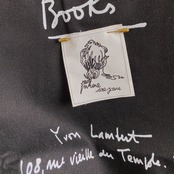 Books
Yvon Lambert
108, rue vieille du Temple.